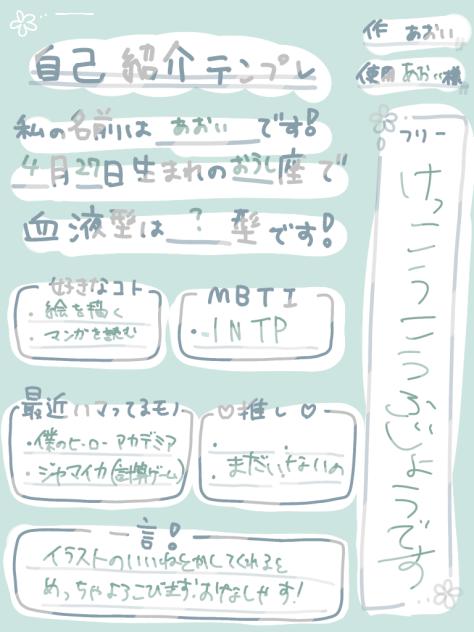 作 あおい"
使用 あおい様"
自己紹介テンプレ
私の名前は あおい です!
4月27日生まれのおうし座で
血液型は ? 型です!
好きなコト
・絵を描く
・マンガを読む
MBTI
・INTP
最近ハマってるモノ
・僕のヒーローアカデミア
・ジャマイカ(計算ゲーム)
♡推し♡
・
・まだいないの
一言!
イラストのいいねとかしてくれると
めっちゃよろこびます!おねしゃす!
フリー
けっこううこうふじょうです